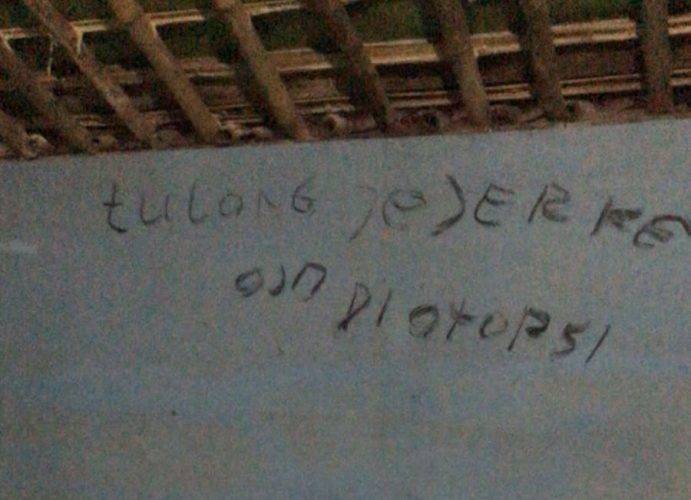 tuLonG JeJER KE
OJO DI OtOPSI